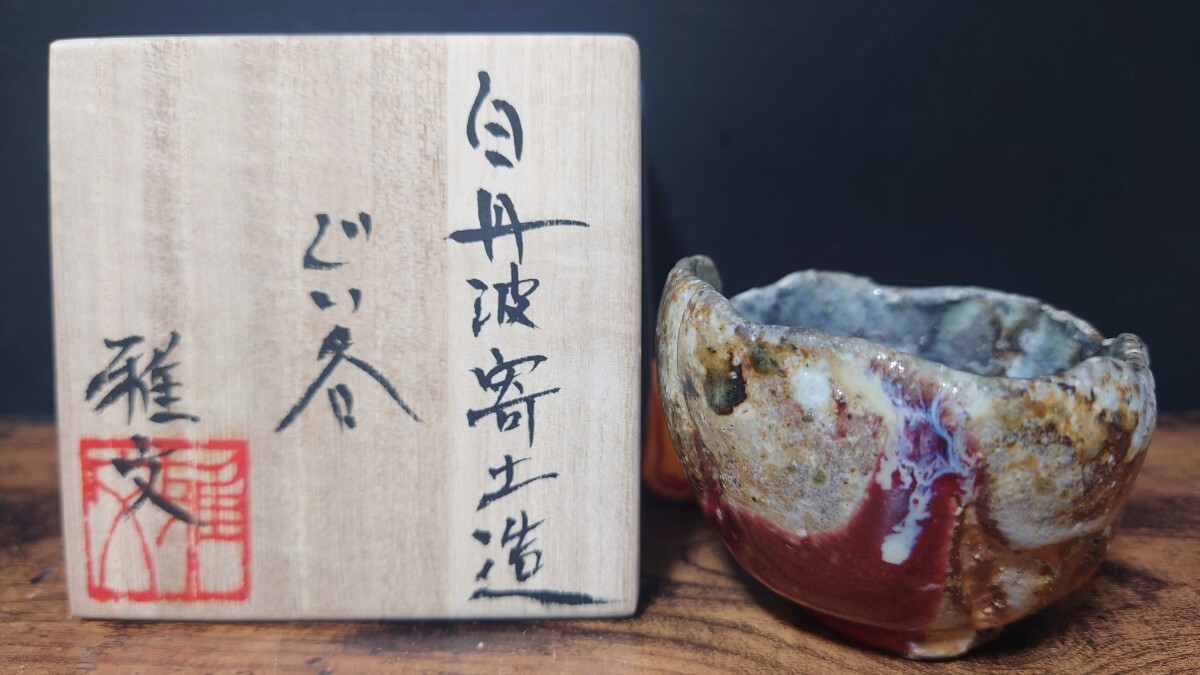 白丹波寄土造
ぐい呑
雅文
雅文